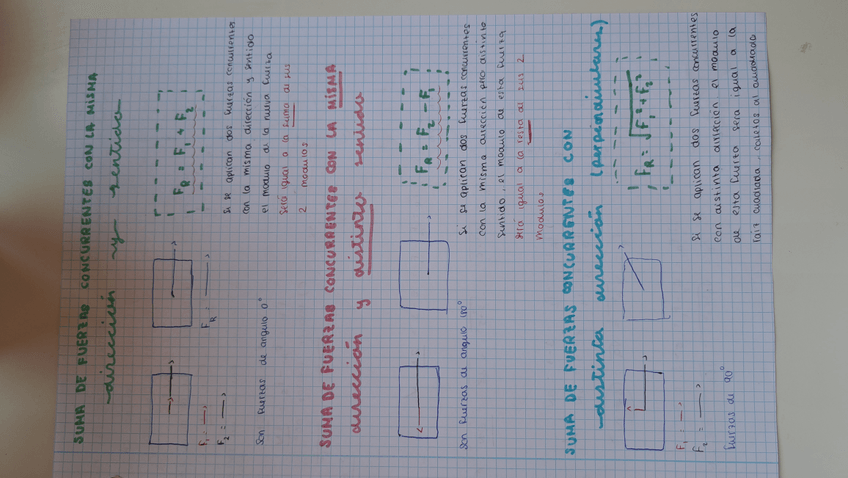 SUMA DE FUERZAS CONCURRENTES CON LA MISMA
dirección y sentido
F₁ :
F₂ :
FR :
FR = F₁ + F₂
Son fuerzas de angulo 0°
Si se aplican dos fuerzas concurrentes
con la misma dirección y sentido
el modulo de la nueva fuerza
será igual a la suma de sus
2 modulos
SUMA DE FUERZAS CONCURRENTES CON LA MISMA
dirección y distinto sentido
FR = F₂ - F₁
Son fuerzas de angulo 180°
Si se aplican dos fuerzas concurrentes
con la misma dirección pero distinto
sentido, el modulo de esta fuerza
será igual a la resta de sus 2
modulos
SUMA DE FUERZAS CONCURRENTES CON
distinta dirección (perpendiculares)
F₁ :
F₂ :
FR = √F₁² + F₂²
fuerzas de 90°
Si se aplican dos fuerzas concurrentes
con distinta dirección el modulo
de esta fuerza será igual a la
raíz cuadrada, catetos al cuadrado